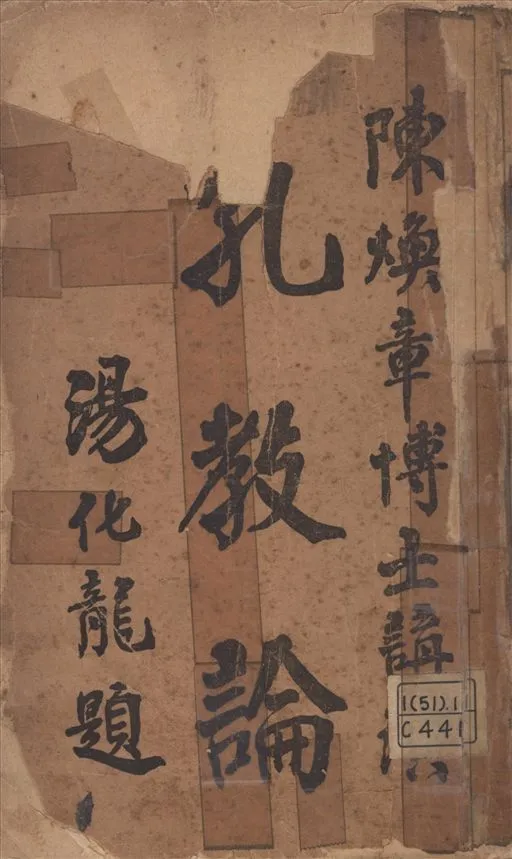 陳煥章博士講
孔教論
湯化龍題
1(51).1
C441